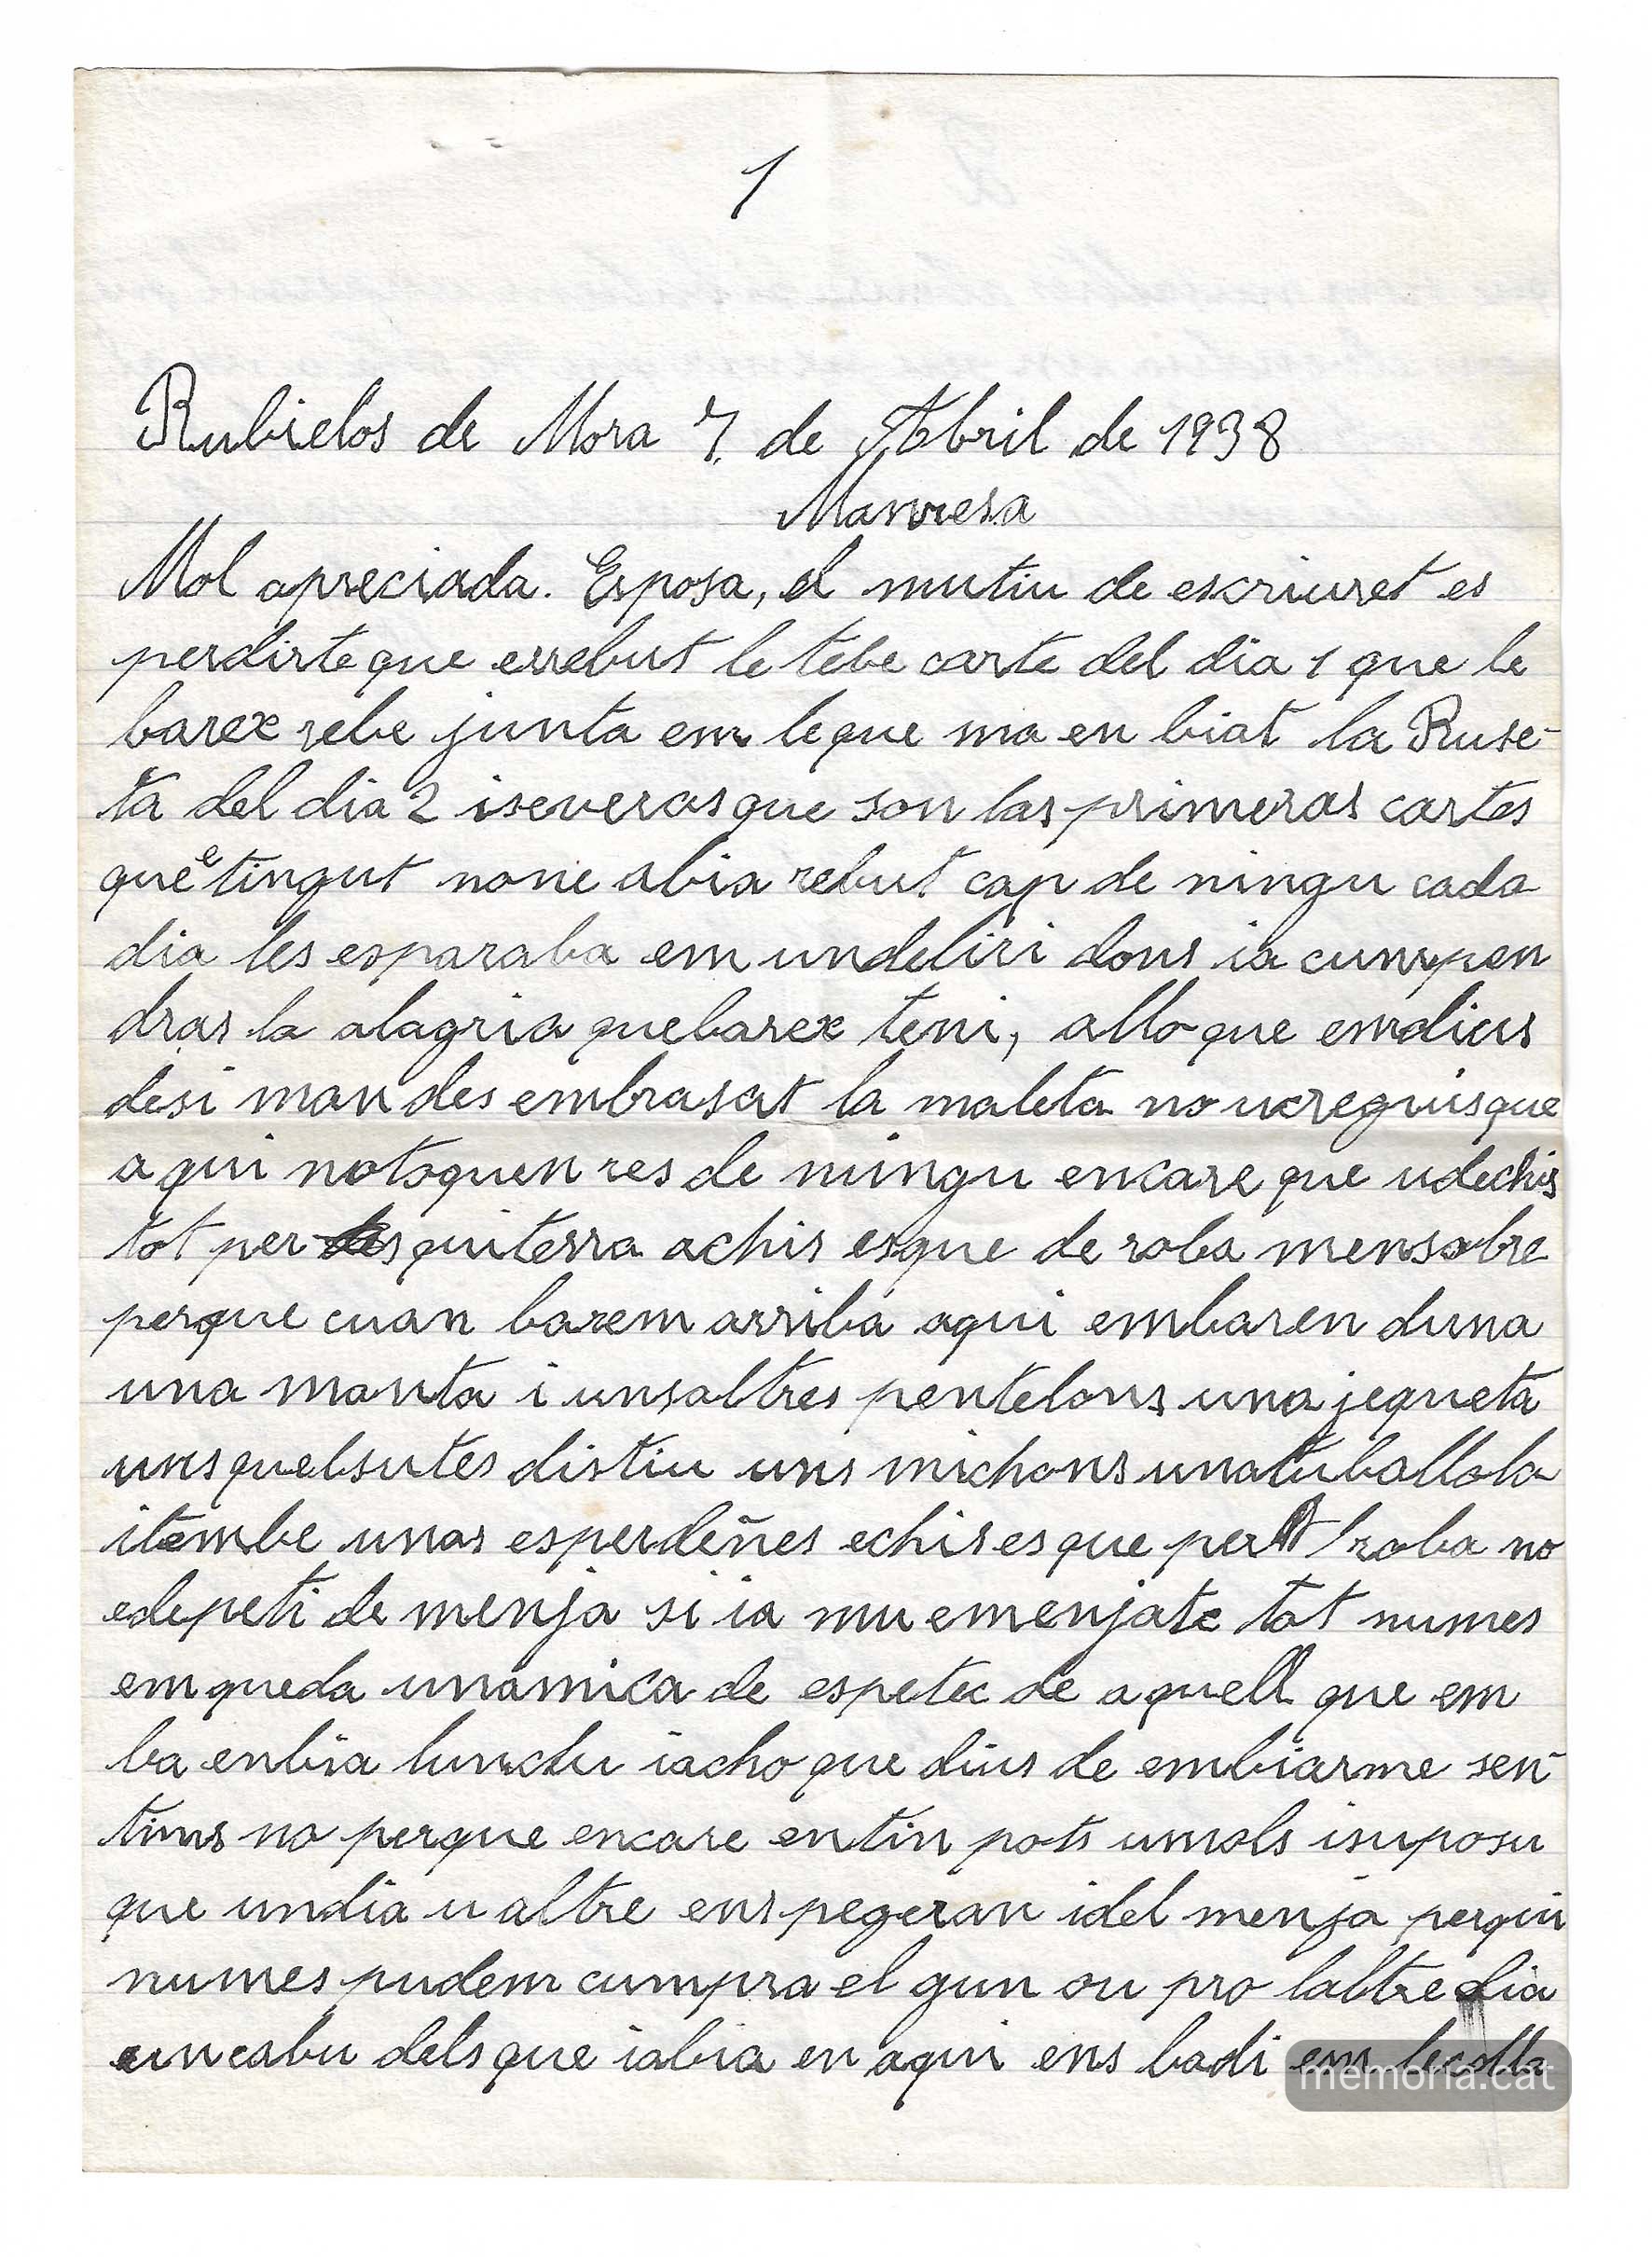 1
Rubielos de Mora 7. de Abril de 1938
Manresa
Mol apreciada. Esposa, el mutiu de escriuret es
perdirte que errebut le tebe carte del dia 1 que le
barex rebe junta em leque ma en biat la Ruse-
ta del dia 2 iseverasque son las primeras cartes
que e tingut none abia rebut cap de ningu cada
dia les esparaba em undeliri dons ia cumpen
dras la alagria quebarex teni, allo que emdius
desi man des embrasat la maleta no ucreguisque
aqui notoquen res de ningu encare que udechis
tot per quiterra achis esque de roba mensobre
perque cuan barem arriba aqui embaren duna
una manta i unsaltres pentelons una jequeta
unsquelsutes distiu uns michons unatuballola
itembe unas esperdeñes echisesque per roba no
edepeti de menja si ia mu emenjate tot numes
emqueda unamica de espetec de aquell que em
ba enbia lunclu iacho que dius de embiarme sen-
tims no perque encare entin pots umols isuposu
que undia u altre ens pegeran idel menja perqui
numes pudem cumpra el gun ou pro laltre dia
uncabu delsque iabia en aqui ens badi em lecolla
memoria.cat